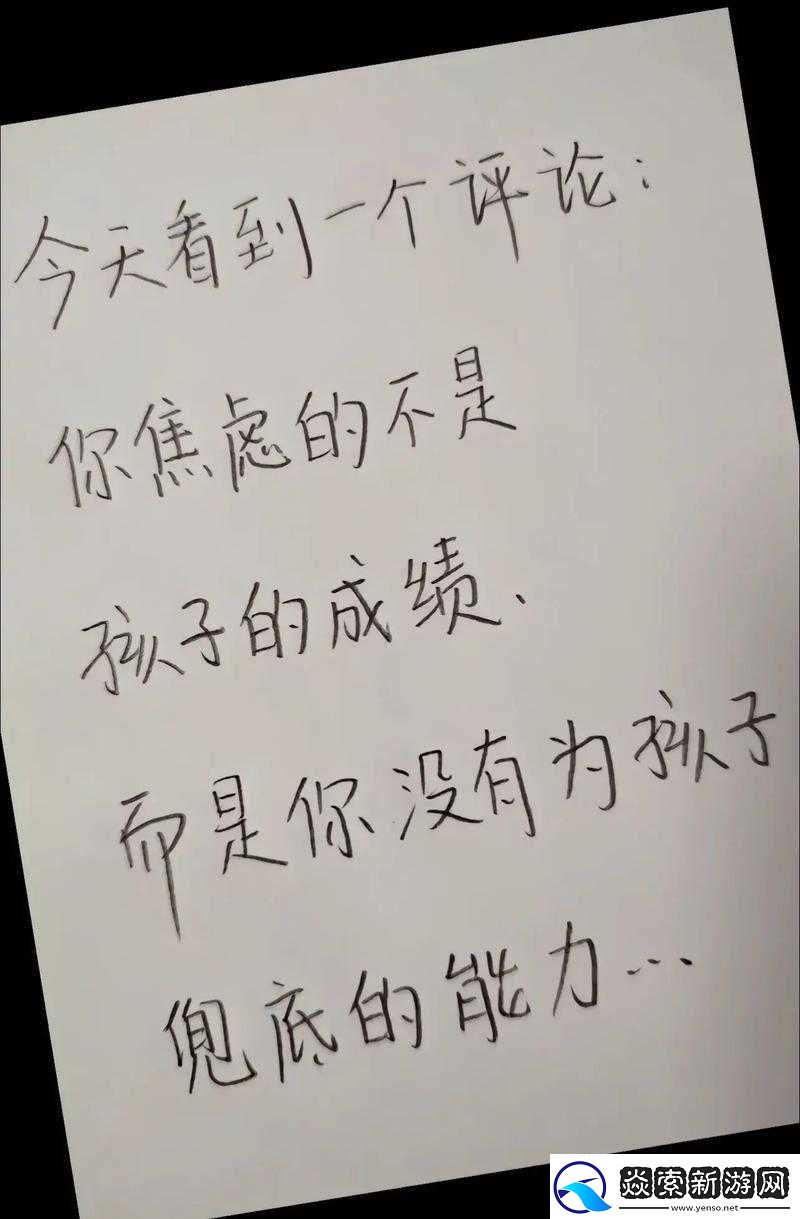 今天看到一个评论：
你焦虑的不是
孩子的成绩、
而是你没有为孩子
兜底的能力…
焱索新游网
www.yenso.net